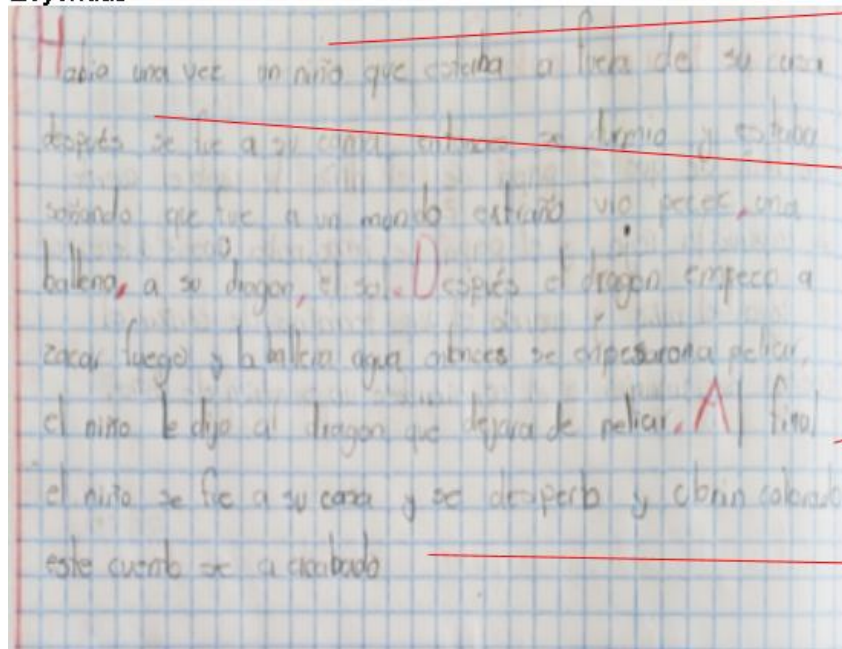 Habia una vez un niño que estaba a fuera de su casa
después se fue a su cama entonces se durmio y estaba
soñando que fue a un mundo extraño vio peces, una
ballena, a su dragon, el sol. Después el dragón empezo a
zacar fuego y la ballena agua entonces se empesarona peliar,
el niño le dijo al dragon que dejara de peliar. Al final
el niño se fue a su casa y se desperto y colorado
este cuento se a acabado